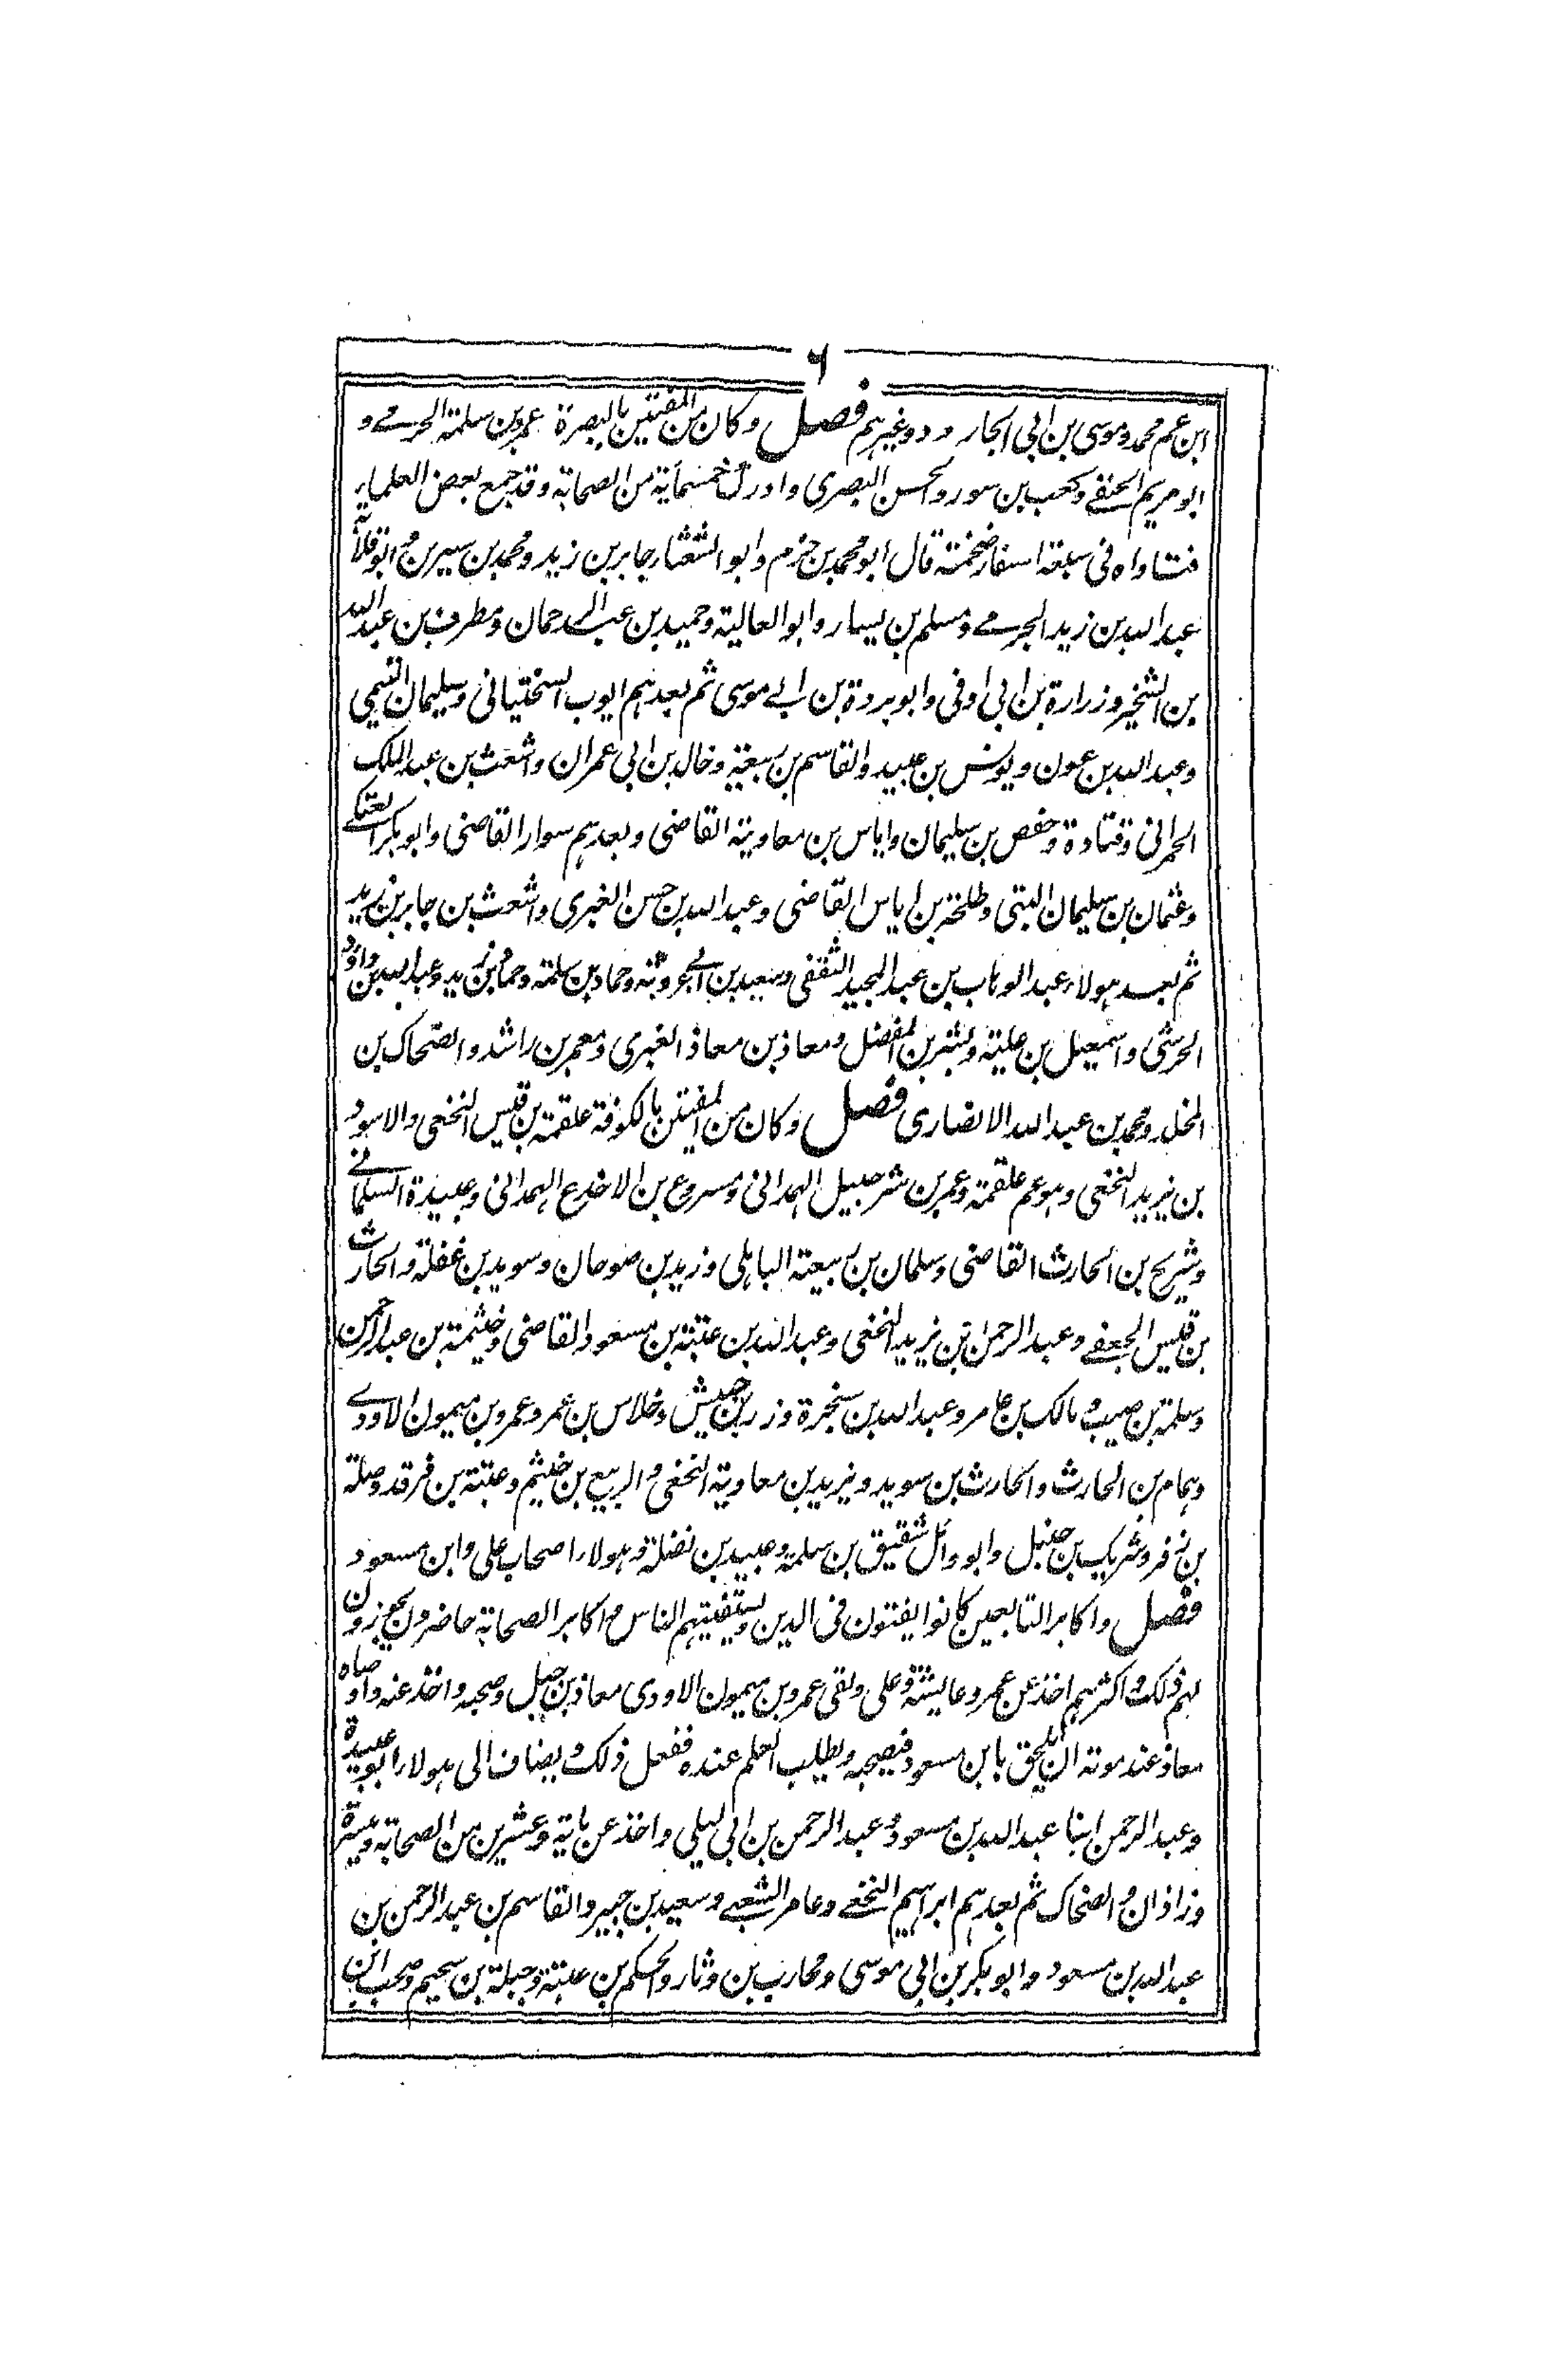 ٦
ابن عم محمد وموسى بن ابى الجارود وغيرهم فصل وكان من المفتين بالبصرة عمرو بن سلمة الجرمے و
ابو مريم الحنفے وكعب بن سور والحسن البصرى وادرك خمسمائة من الصحابة وقد جمع بعض العلماء
فتاواه فى سبعة اسفار ضخمة قال ابو محمد بن حزم وابو الشعثاء جابر بن زيد ومحمد بن سيرين وابو قلابة
عبد الله بن زيد الجرمے ومسلم بن يسار وابو العالية وحميد بن عبد الرحمان ومطرف بن عبد الله
بن الشخير وزرارة بن ابى اوفى وابو بردة بن ابے موسى ثم بعدهم ايوب السختيانى وسليمان التيمى
وعبد الله بن عون ويونس بن عبيد والقاسم بن ربيعة وخالد بن ابى عمران واشعث بن عبد الملك
الحمرانى وقتادة وحفص بن سليمان واياس بن معاوية القاضى وبعدهم سوار القاضى وابو بكر العتكے
وعثمان بن سليمان البتى وطلحة بن اياس القاضى وعبد الله بن حسن العنبرى واشعث بن جابر بن زيد
ثم بعد هولاء عبد الوهاب بن عبد المجيد الثقفى وسعيد بن ابے عروبة وحماد بن سلمة وحماد بن زيد وعبد الله بن داؤد
الحرشى واسمعيل بن علية وبشر بن المفضل ومعاذ بن معاذ العنبرى ومعمر بن راشد والضحاك بن
المخلد ومحمد بن عبد الله الانصارى فصل وكان من المفتين بالكوفة علقمة بن قيس النخعى والاسود
بن يزيد النخعى وهو عم علقمة وعمرو بن شرحبيل الهمدانى ومسروع بن الاخدع الهمدانى وعبيدة السلمانے
وشريح بن الحارث القاضى وسلمان بن ربيعة الباهلى وزيد بن صوحان وسويد بن غفلة والحارث
بن قيس الجعفے وعبد الرحمن بن يزيد النخعى وعبد الله بن عتبة بن مسعود القاضى وخيثمة بن عبد الرحمن
وسلمة بن صهيب ومالك بن عامر وعبد الله بن سنجرة وزر بن حبيش وخلاس بن عمرو وعمرو بن ميمون الاودے
وهمام بن الحارث والحارث بن سويد ويزيد بن معاوية النخعى والربيع بن خثيم وعتبة بن فرقد وصلة
بن زفر وشريك بن حنبل وابو وائل شقيق بن سلمة وعبيد بن نضلة وهولاء اصحاب على وابن مسعود
فصل واكابر التابعين كانوا يفتون فى الدين ويستفتيهم الناس واكابر الصحابة حاضرون يجوزون
لهم ذلك واكثرهم اخذ عن عمر وعايشة وعلى ولقى عمرو بن ميمون الاودى معاذ بن جبل وصحبه واخذ عنه واوصاه
معاذ عند موته ان يلحق بابن مسعود فيصحبه ويطلب العلم عنده ففعل ذلك ويضاف الى هولاء ابو عبيدة
وعبد الرحمن ابنا عبد الله بن مسعود وعبد الرحمن بن ابى ليلى واخذ عن مائة وعشرين من الصحابة وميسرة
وزاذان والضحاك ثم بعدهم ابراهيم النخعے وعامر الشعبے وسعيد بن جبير والقاسم بن عبد الرحمن بن
عبد الله بن مسعود وابو بكر بن ابى موسى ومحارب بن دثار والحكم بن عتبة وجبلة بن سحيم وصحب ابن